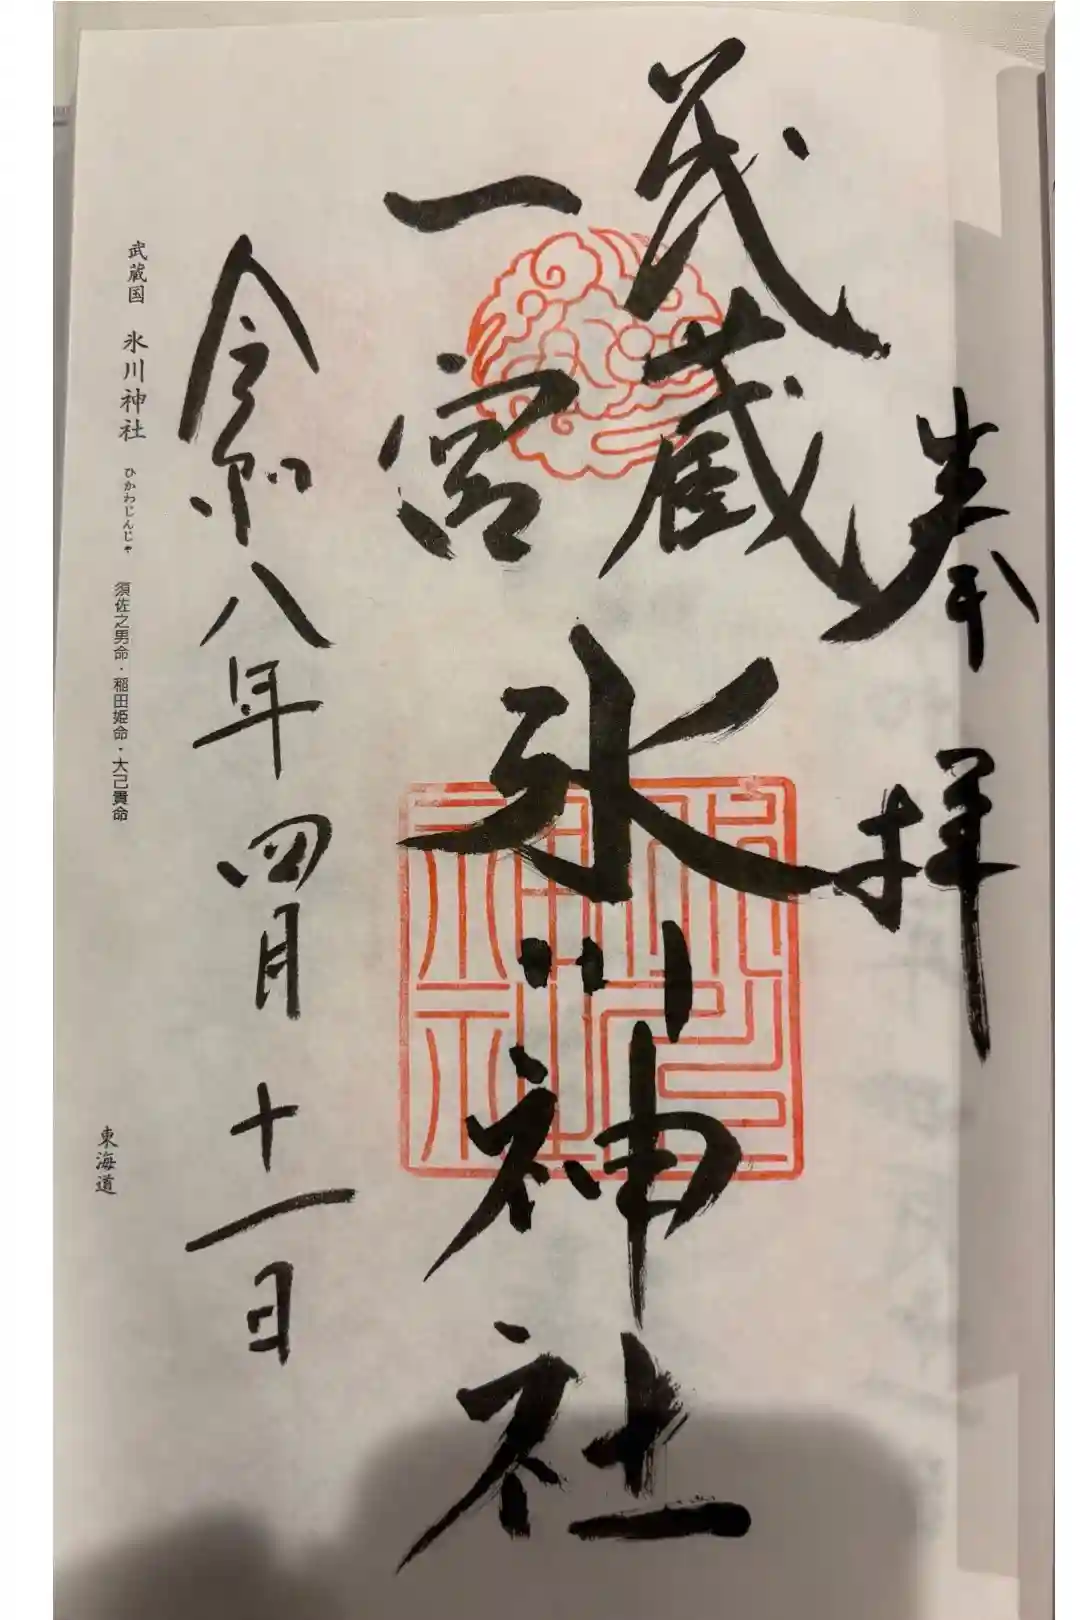 奉拝
武蔵
一宮
氷川神社
令和八年四月十一日
武蔵国 氷川神社 ひかわじんじゃ 須佐之男命・稲田姫命・大己貴命
東海道
氷川
神社